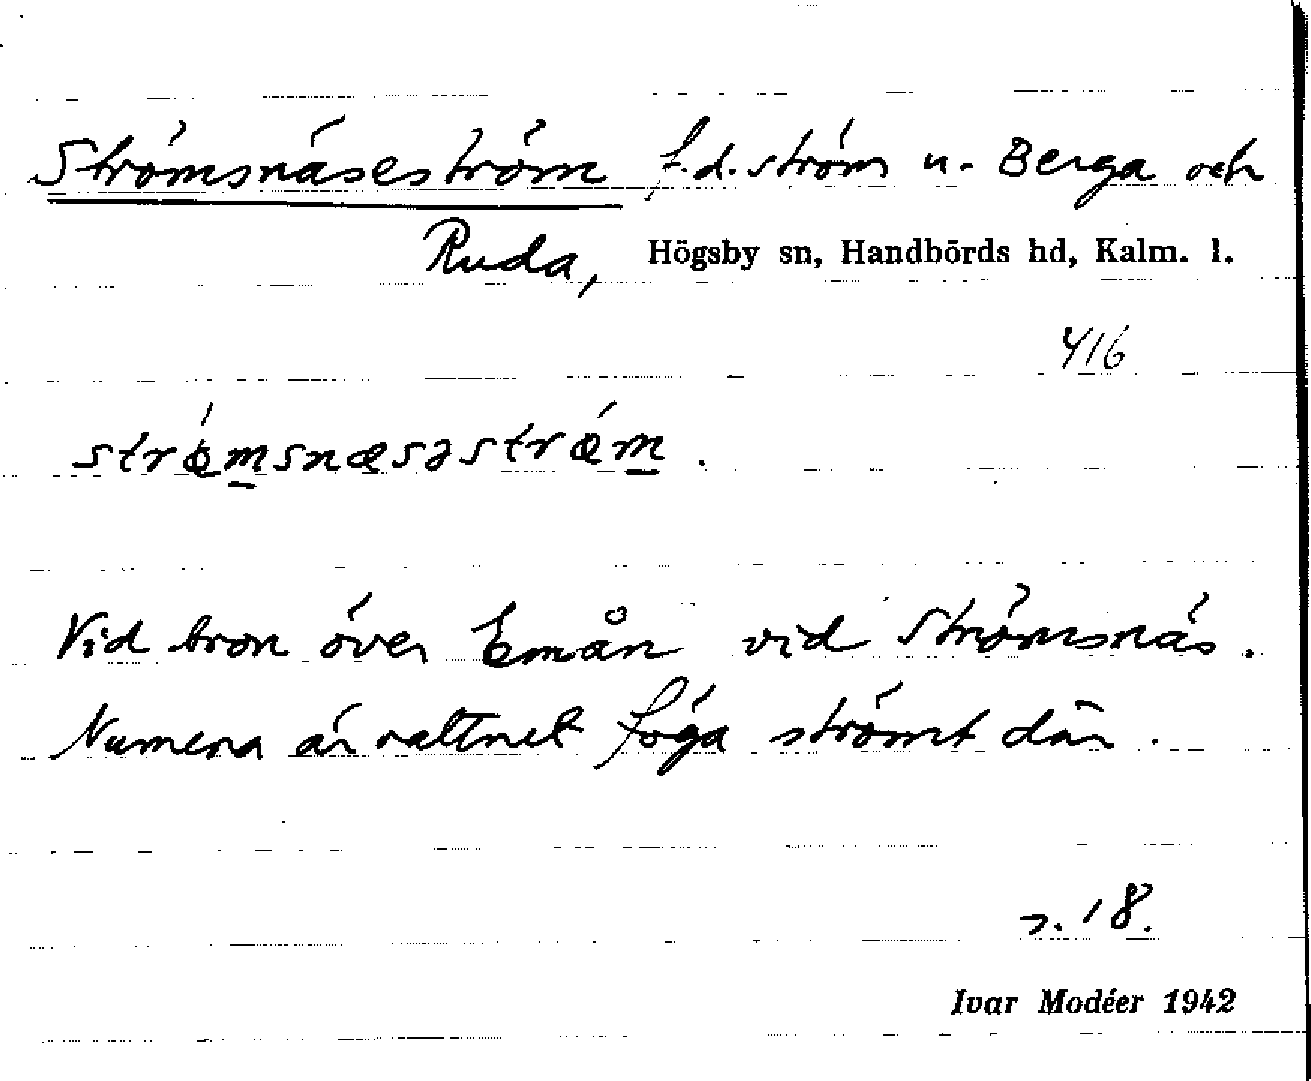 Strömsnäseström f.d. ström u. Berga och
Ruda, Högsby sn, Handbörds hd, Kalm. l.
416
strǿmsnæsəstrǿm.
Vid bron över Emån vid Strömsnäs.
Numera är vattnet föga strömt där.
s. 18.
Ivar Modéer 1942